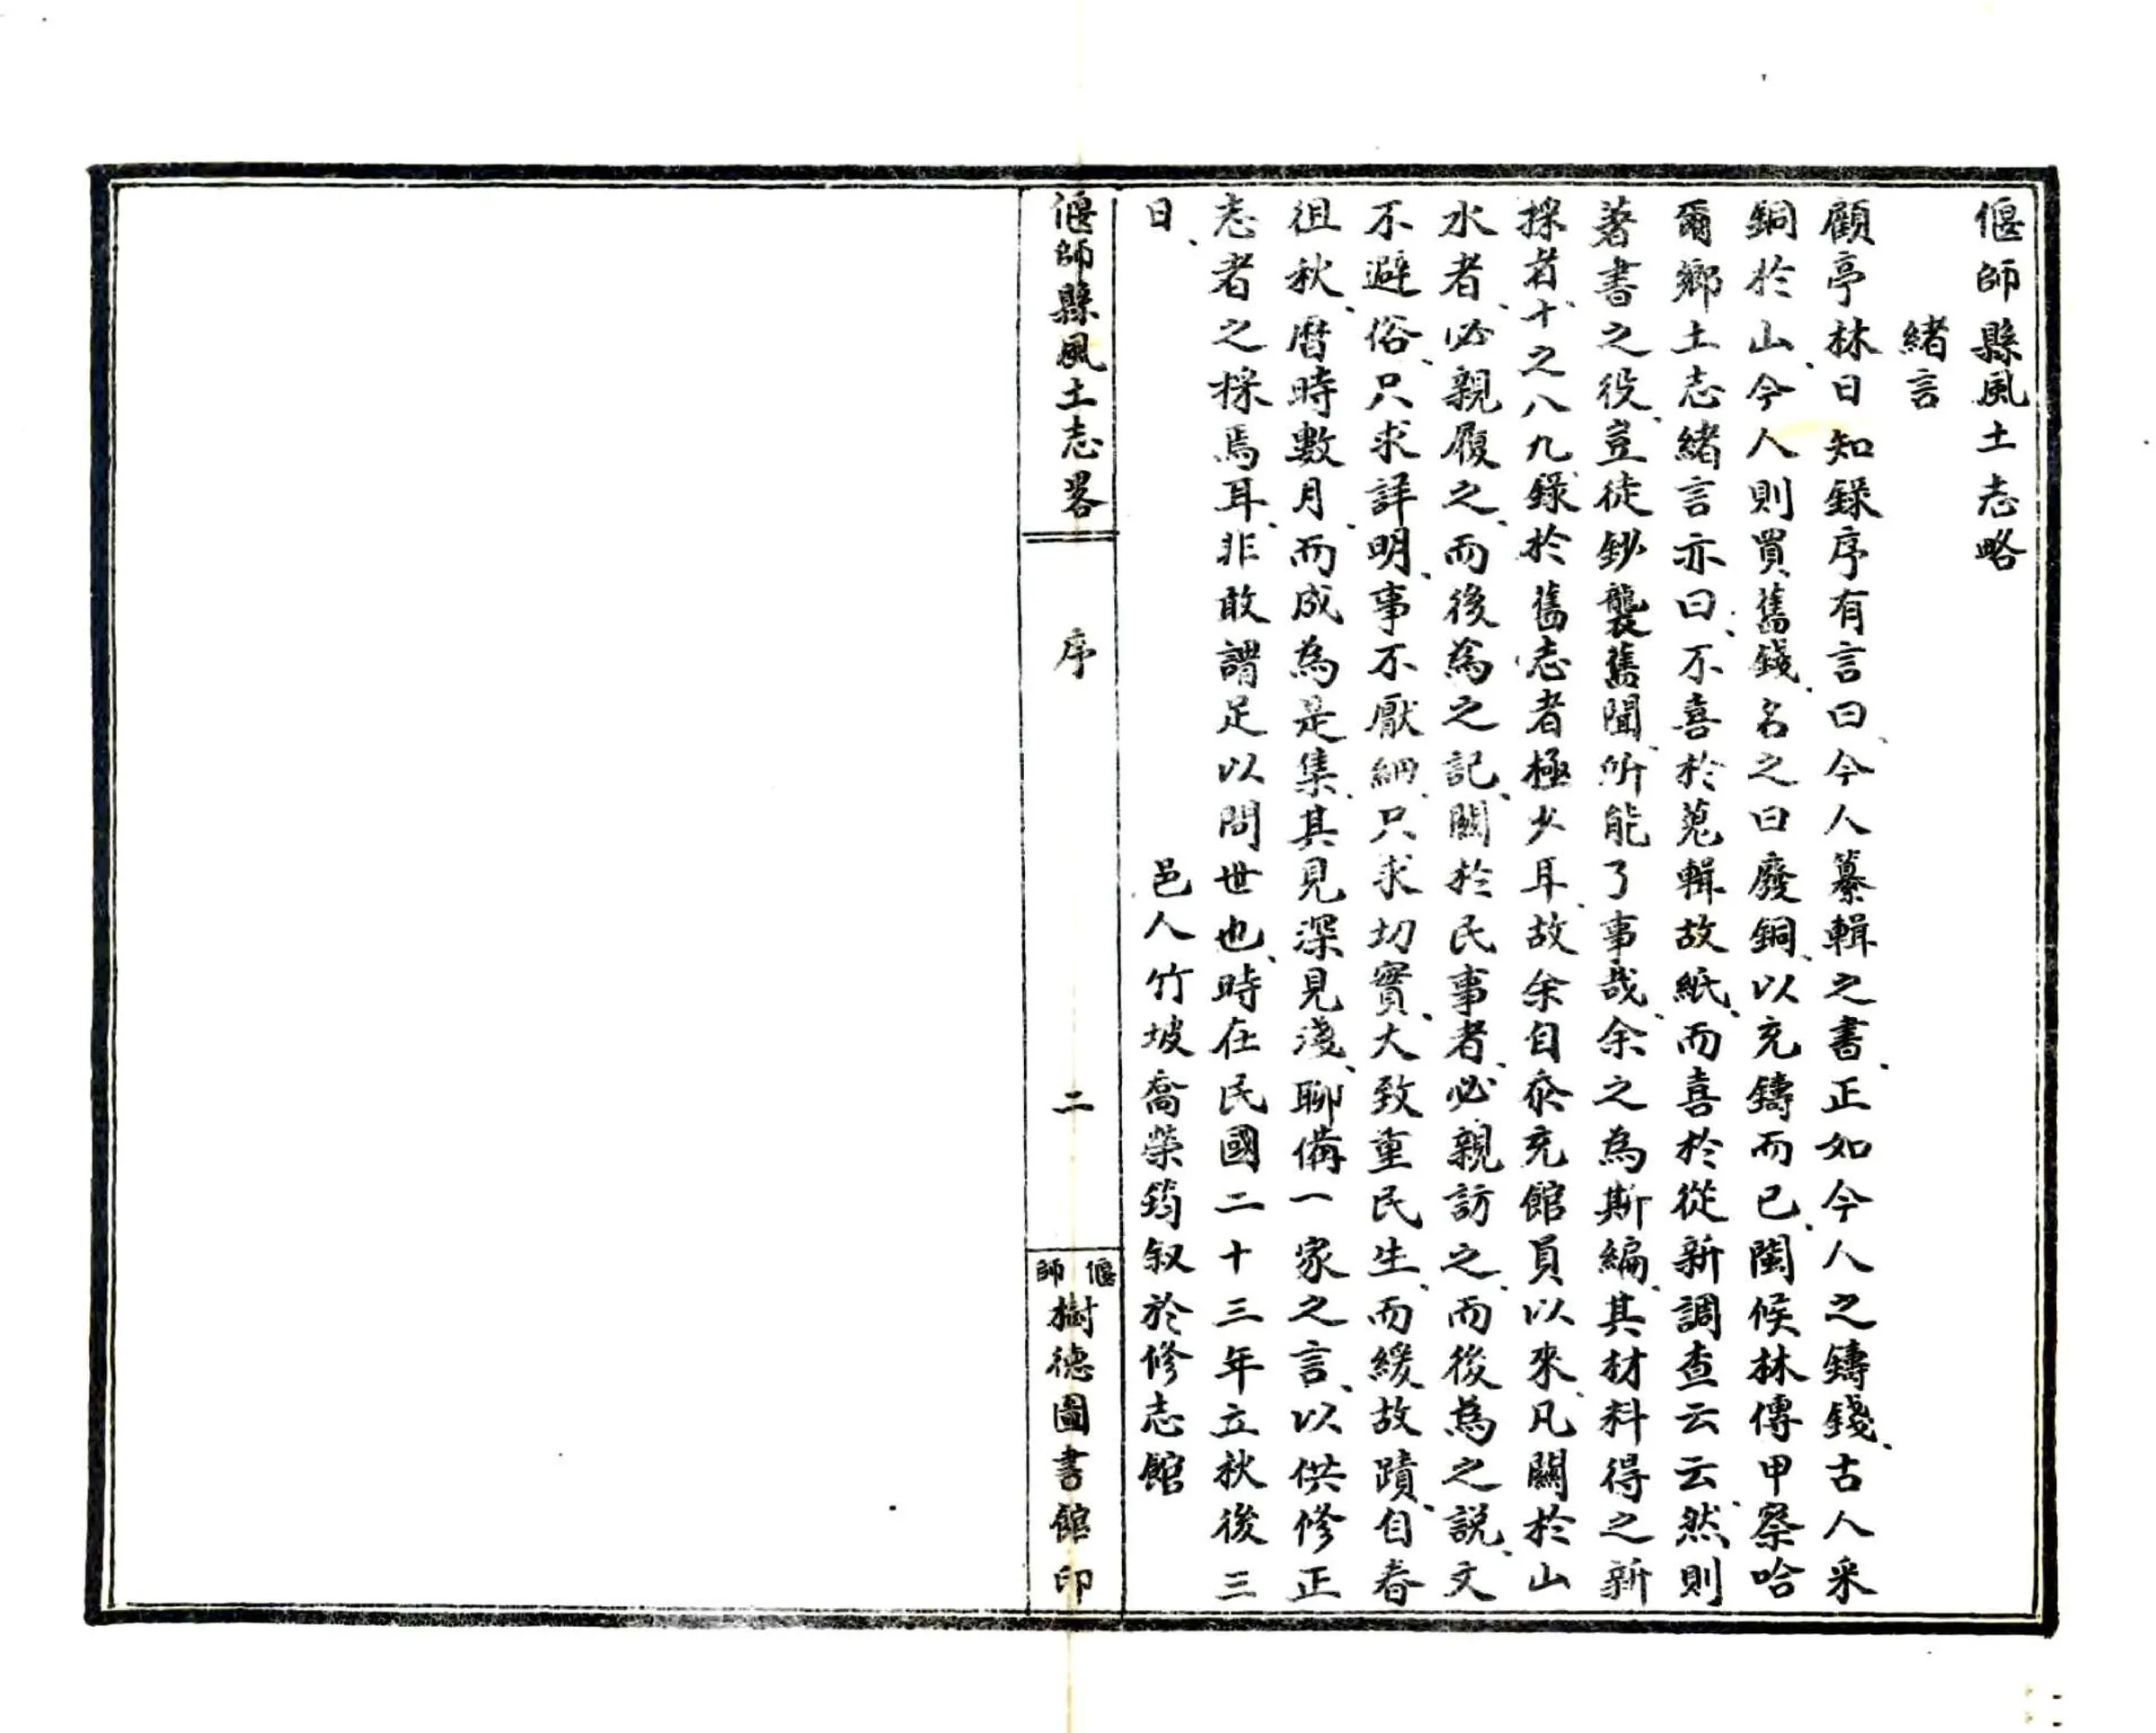 偃師縣風土志略
緒言
顧亭林日知錄序有言曰、今人纂輯之書、正如今人之鑄錢、古人采
銅於山、今人則買舊錢、名之曰廢銅、以充鑄而已、閩候林傳甲察哈
爾鄉土志緒言亦曰、不喜於蒐輯故紙、而喜於從新調查云云、然則
著書之役、豈徒鈔襲舊聞、所能了事哉、余之為斯編、其材料得之新
採者、十之八九、錄於舊志者極少耳、故余自忝充館員以來、凡關於山
水者、必親履之、而後為之記、關於民事者、必親訪之、而後為之說、文
不避俗、只求詳明、事不厭細、只求切實、大致重民生、而緩故蹟、自春
徂秋、曆時數月、而成為是集、其見深見淺、聊備一家之言、以供修正
志者之採焉耳、非敢謂足以問世也、時在民國二十三年立秋後三
日、
邑人竹坡喬榮筠叙於修志館
偃師縣風土志畧
序
二
偃師
樹德圖書館印